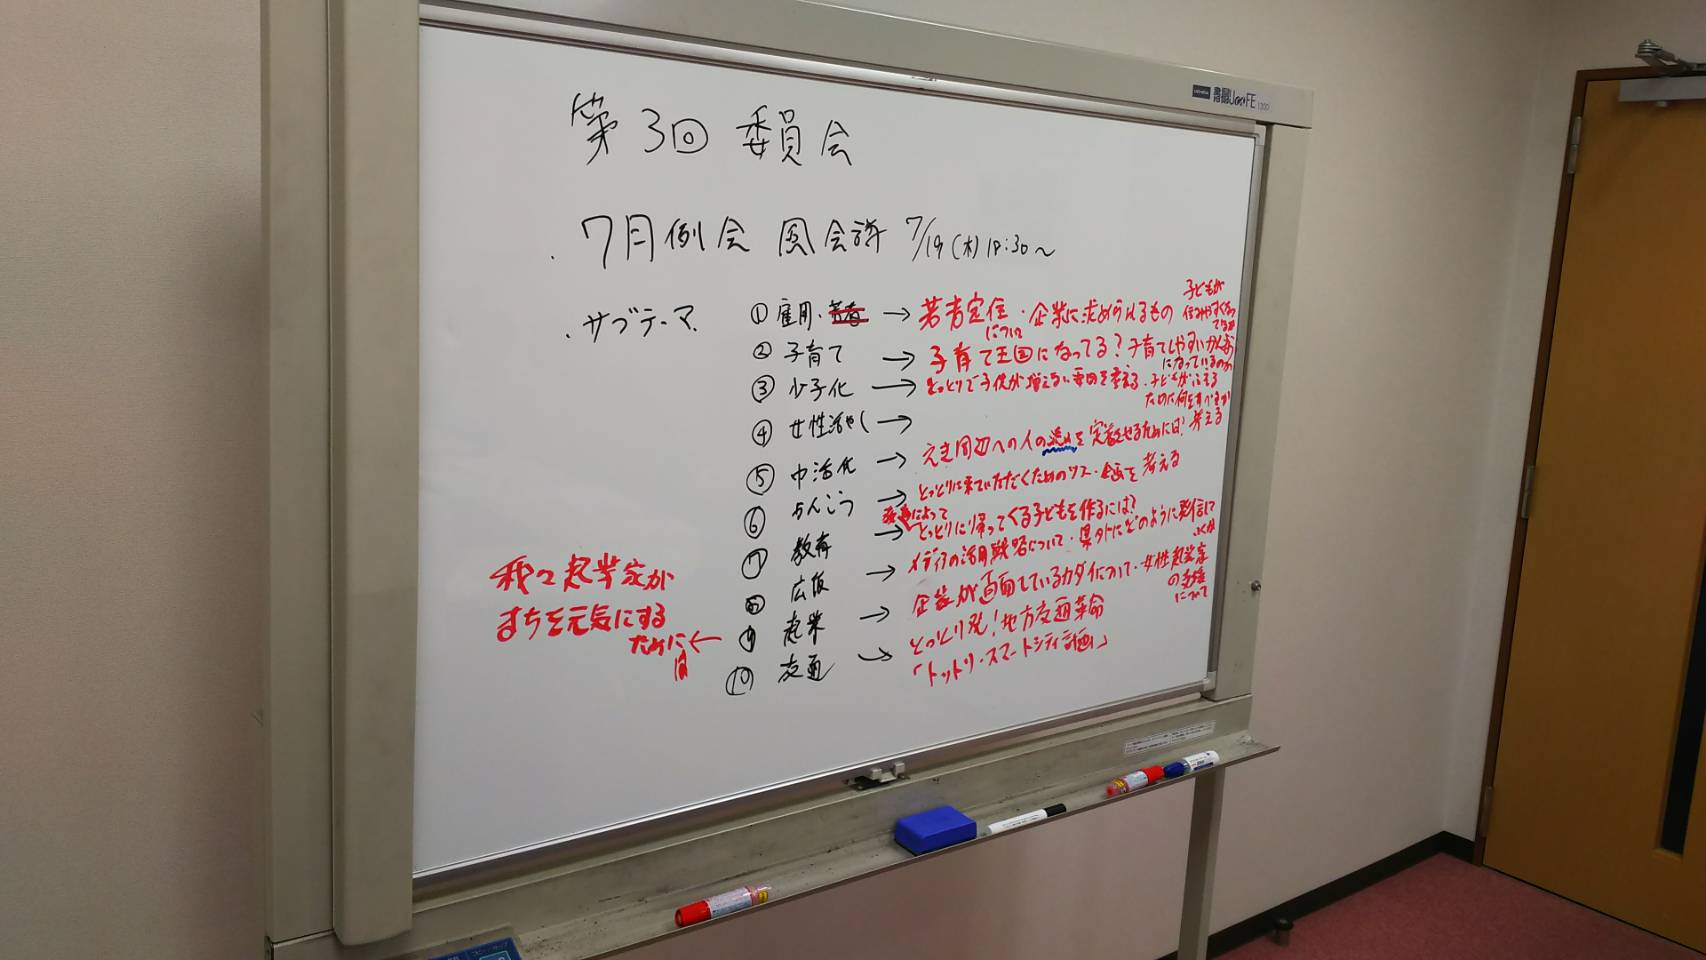 第3回 委員会
・7月例会 風会議 7/19(木) 18:30〜
・サブテーマ
① 雇用・若者 → 若者定住・企業に求められるもの
について
子どもが
住みやすくなっ
② 子育て → 子育て王国になってる?子育てしやすいかんきょう
になっているのか
③ 少子化 → とっとりで子供が増えない要因を考える・子どもがふえる
ために何をすべきか
考える
④ 女性活やく →
⑤ 中活化 → えき周辺への人の流れを定着させるためには?
⑥ かんこう → とっとりに来ていただくためのツアー・企画を考える
⑦ 教育 → とっとりに帰ってくる子どもを作るには?
によって
⑧ 広報 → メディアの活用戦略について・県外にどのように発信して
いくか
⑨ 起業 → 企業が直面しているカダイについて・女性起業家
の支援
について
我々起業家が
まちを元気にする
ためには ←
⑩ 交通 → とっとり発!地方交通革命
「トットリ・スマートシティ計画」
書撮りョーFE 1000